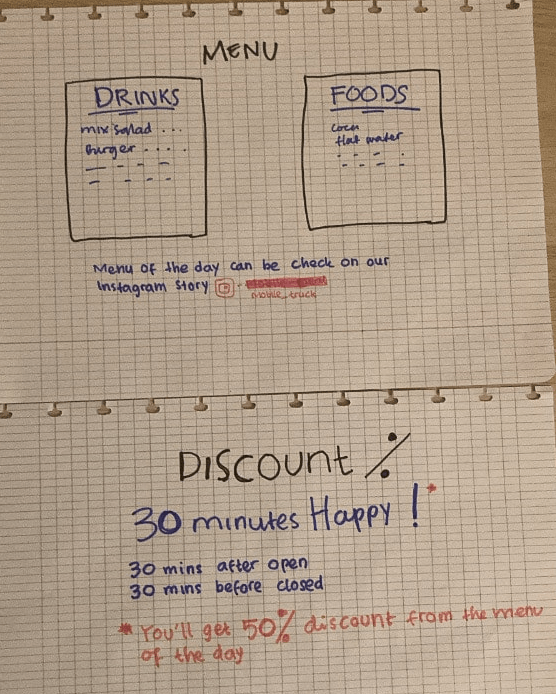 MENU
DRINKS
mix salad ...
Burger ....
FOODS
flat water
Menu of the day can be check on our
Instagram Story
mobile_truck
DISCOUNT %
30 minutes Happy !*
30 mins after open
30 mins before closed
* You'll get 50% discount from the menu
of the day